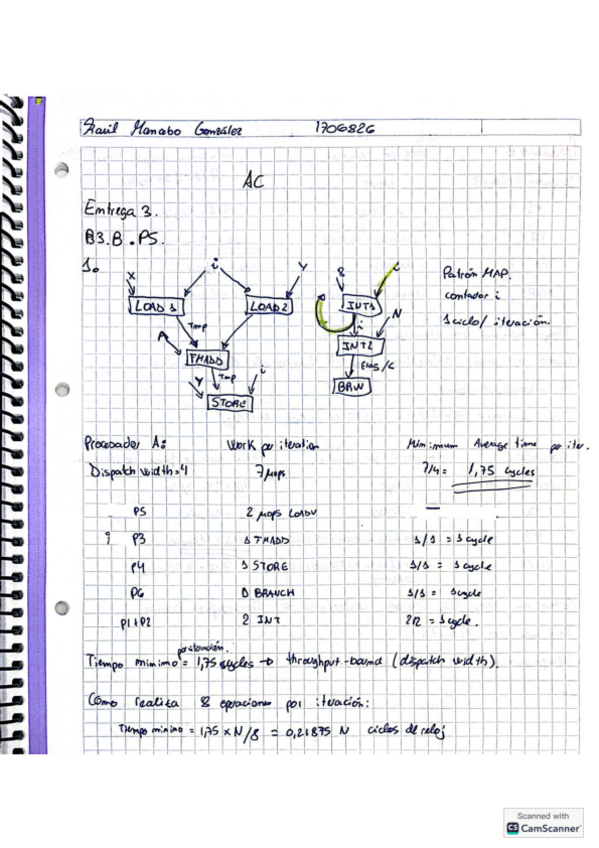 Raúl Manabo González 1706826
AC
Entrega 3.
B3.B.P5.
1.
X i Y
LOAD 1 LOAD 2
Tmp
A
FMADD
Y Tmp i
STORE
8 i
INT1
i N
INT2
flag/c
BRW
Patrón MAP.
contador i
1 ciclo/ iteración.
Procesador A: Work per iteration Minimum Average time per iter.
Dispatch width=4 7 μops 7/4 = 1,75 cycles
P5 2 μops LOADV —
P3 1 FMADD 1/1 = 1 cycle
P4 1 STORE 1/1 = 1 cycle
P6 1 BRANCH 1/1 = 1 cycle
P1+P2 2 INT 2/2 = 1 cycle.
por iteración.
Tiempo mínimo = 1,75 cycles → throughput-bound (dispatch width).
Como realiza 8 operaciones por iteración:
Tiempo mínimo = 1,75 x N/8 = 0,21875 N ciclos de reloj
Scanned with
CS CamScanner